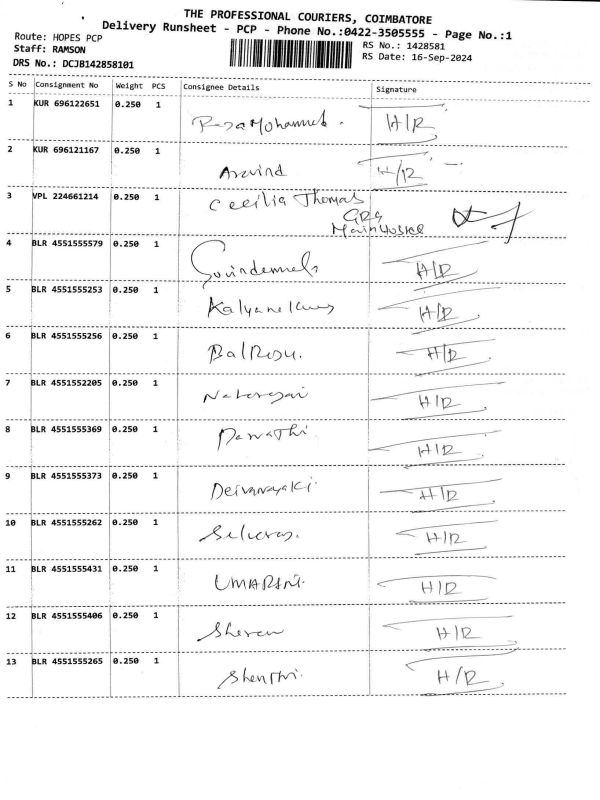 THE PROFESSIONAL COURIERS, COIMBATORE
Delivery Runsheet - PCP - Phone No.:0422-3505555 - Page No.:1
Route: HOPES PCP
Staff: RAMSON
DRS No.: DCJB142858101
RS No.: 1428581
RS Date: 16-Sep-2024
S No Consignment No Weight PCS Consignee Details Signature
1 KUR 696122651 0.250 1 H/R
2 KUR 696121167 0.250 1 Aravind H/R
3 VPL 224661214 0.250 1 Cecilia Thomas
GRG
Main Hostel
4 BLR 4551555579 0.250 1 H/R
5 BLR 4551555253 0.250 1 H/R
6 BLR 4551555256 0.250 1 H/R
7 BLR 4551552205 0.250 1 H/R
8 BLR 4551555369 0.250 1 H/R
9 BLR 4551555373 0.250 1 Deivanayaki H/R
10 BLR 4551555262 0.250 1 H/R
11 BLR 4551555431 0.250 1 H/R
12 BLR 4551555406 0.250 1 H/R
13 BLR 4551555265 0.250 1 H/R